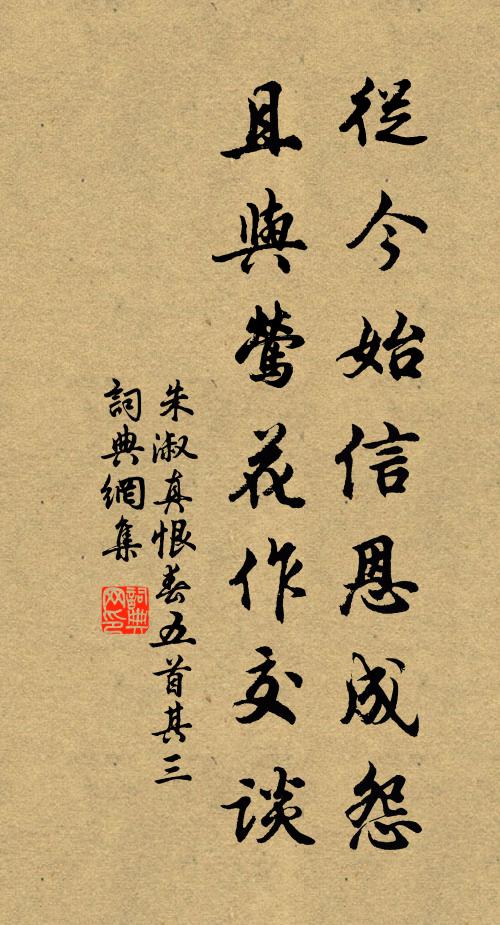 從今始信恩成怨
且與鶯花作交談
朱淑真恨春五首其三
詞典網集
詞典網印